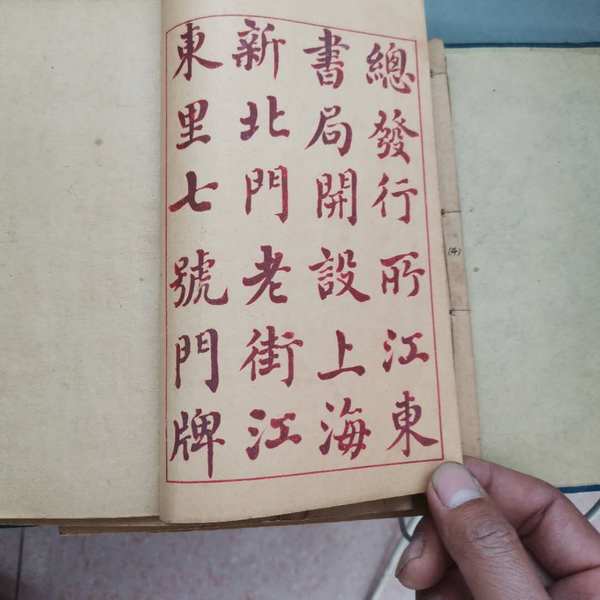 總發行所江東
書局開設上海
新北門老街江
東里七號門牌
(4)